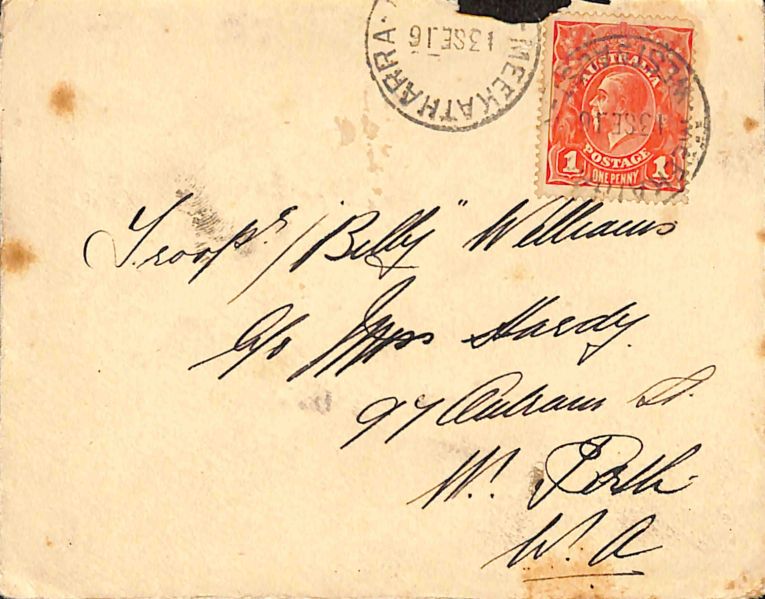 MEEKATHARRA
13 SE 16
AUSTRALIA
13 SE 16
POSTAGE
1 ONE PENNY 1
Troopr / "Billy" Williams
C/o Hardy
97 Outram St.
W. Perth
W. A